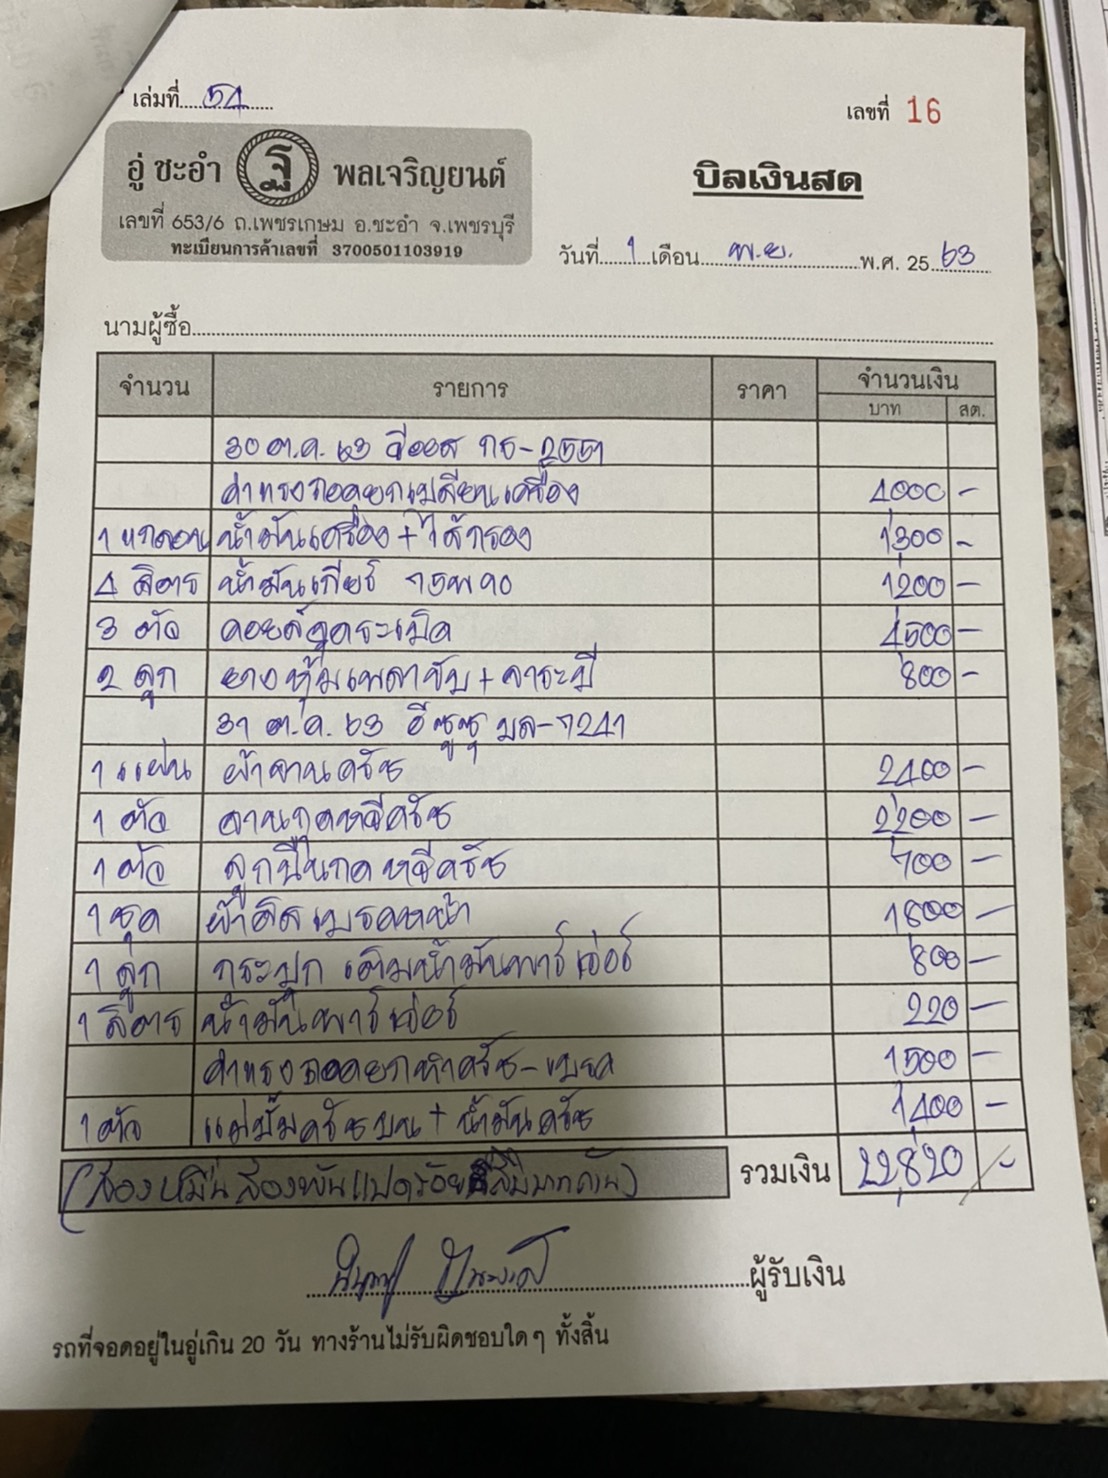 เล่มที่ 54
เลขที่ 16
อู่ ชะอำ ฐ พลเจริญยนต์
เลขที่ 653/6 ถ.เพชรเกษม อ.ชะอำ จ.เพชรบุรี
ทะเบียนการค้าเลขที่ 3700501103919
บิลเงินสด
วันที่ 1 เดือน พ.ย. พ.ศ. 2563
นามผู้ซื้อ
จำนวน รายการ ราคา จำนวนเงิน
บาท สต.
30 ต.ค. 63 วีออส กธ-2551
ค่าแรงถอดยกเปลี่ยนเครื่อง 4000 -
1 แกลอน น้ำมันเครื่อง + ไส้กรอง 1300 -
4 ลิตร น้ำมันเกียร์ 75W90 1200 -
3 ตัว คอยล์จุดระเบิด 4500 -
2 ลูก ยางหุ้มเพลาขับ + จาระบี 800 -
31 ต.ค. 63 อีซูซุ บล-7241
1 แผ่น ผ้าจานครัช 2400 -
1 ตัว จานกดหวีครัช 2200 -
1 ตัว ลูกปืนกดหวีครัช 700 -
1 ชุด ผ้าดิสเบรคหน้า 1800 -
1 ลูก กระปุกเติมน้ำมันพาวเวอร์ 800 -
1 ลิตร น้ำมันพาวเวอร์ 220 -
ค่าแรงถอดยกทำครัช-เบรค 1500 -
1 ตัว แม่ปั๊มครัชบน + น้ำมันครัช 1400 -
(สองหมื่นสองพันแปดร้อยยี่สิบบาทถ้วน) รวมเงิน 22,820 -
ผู้รับเงิน
รถที่จอดอยู่ในอู่เกิน 20 วัน ทางร้านไม่รับผิดชอบใดๆ ทั้งสิ้น